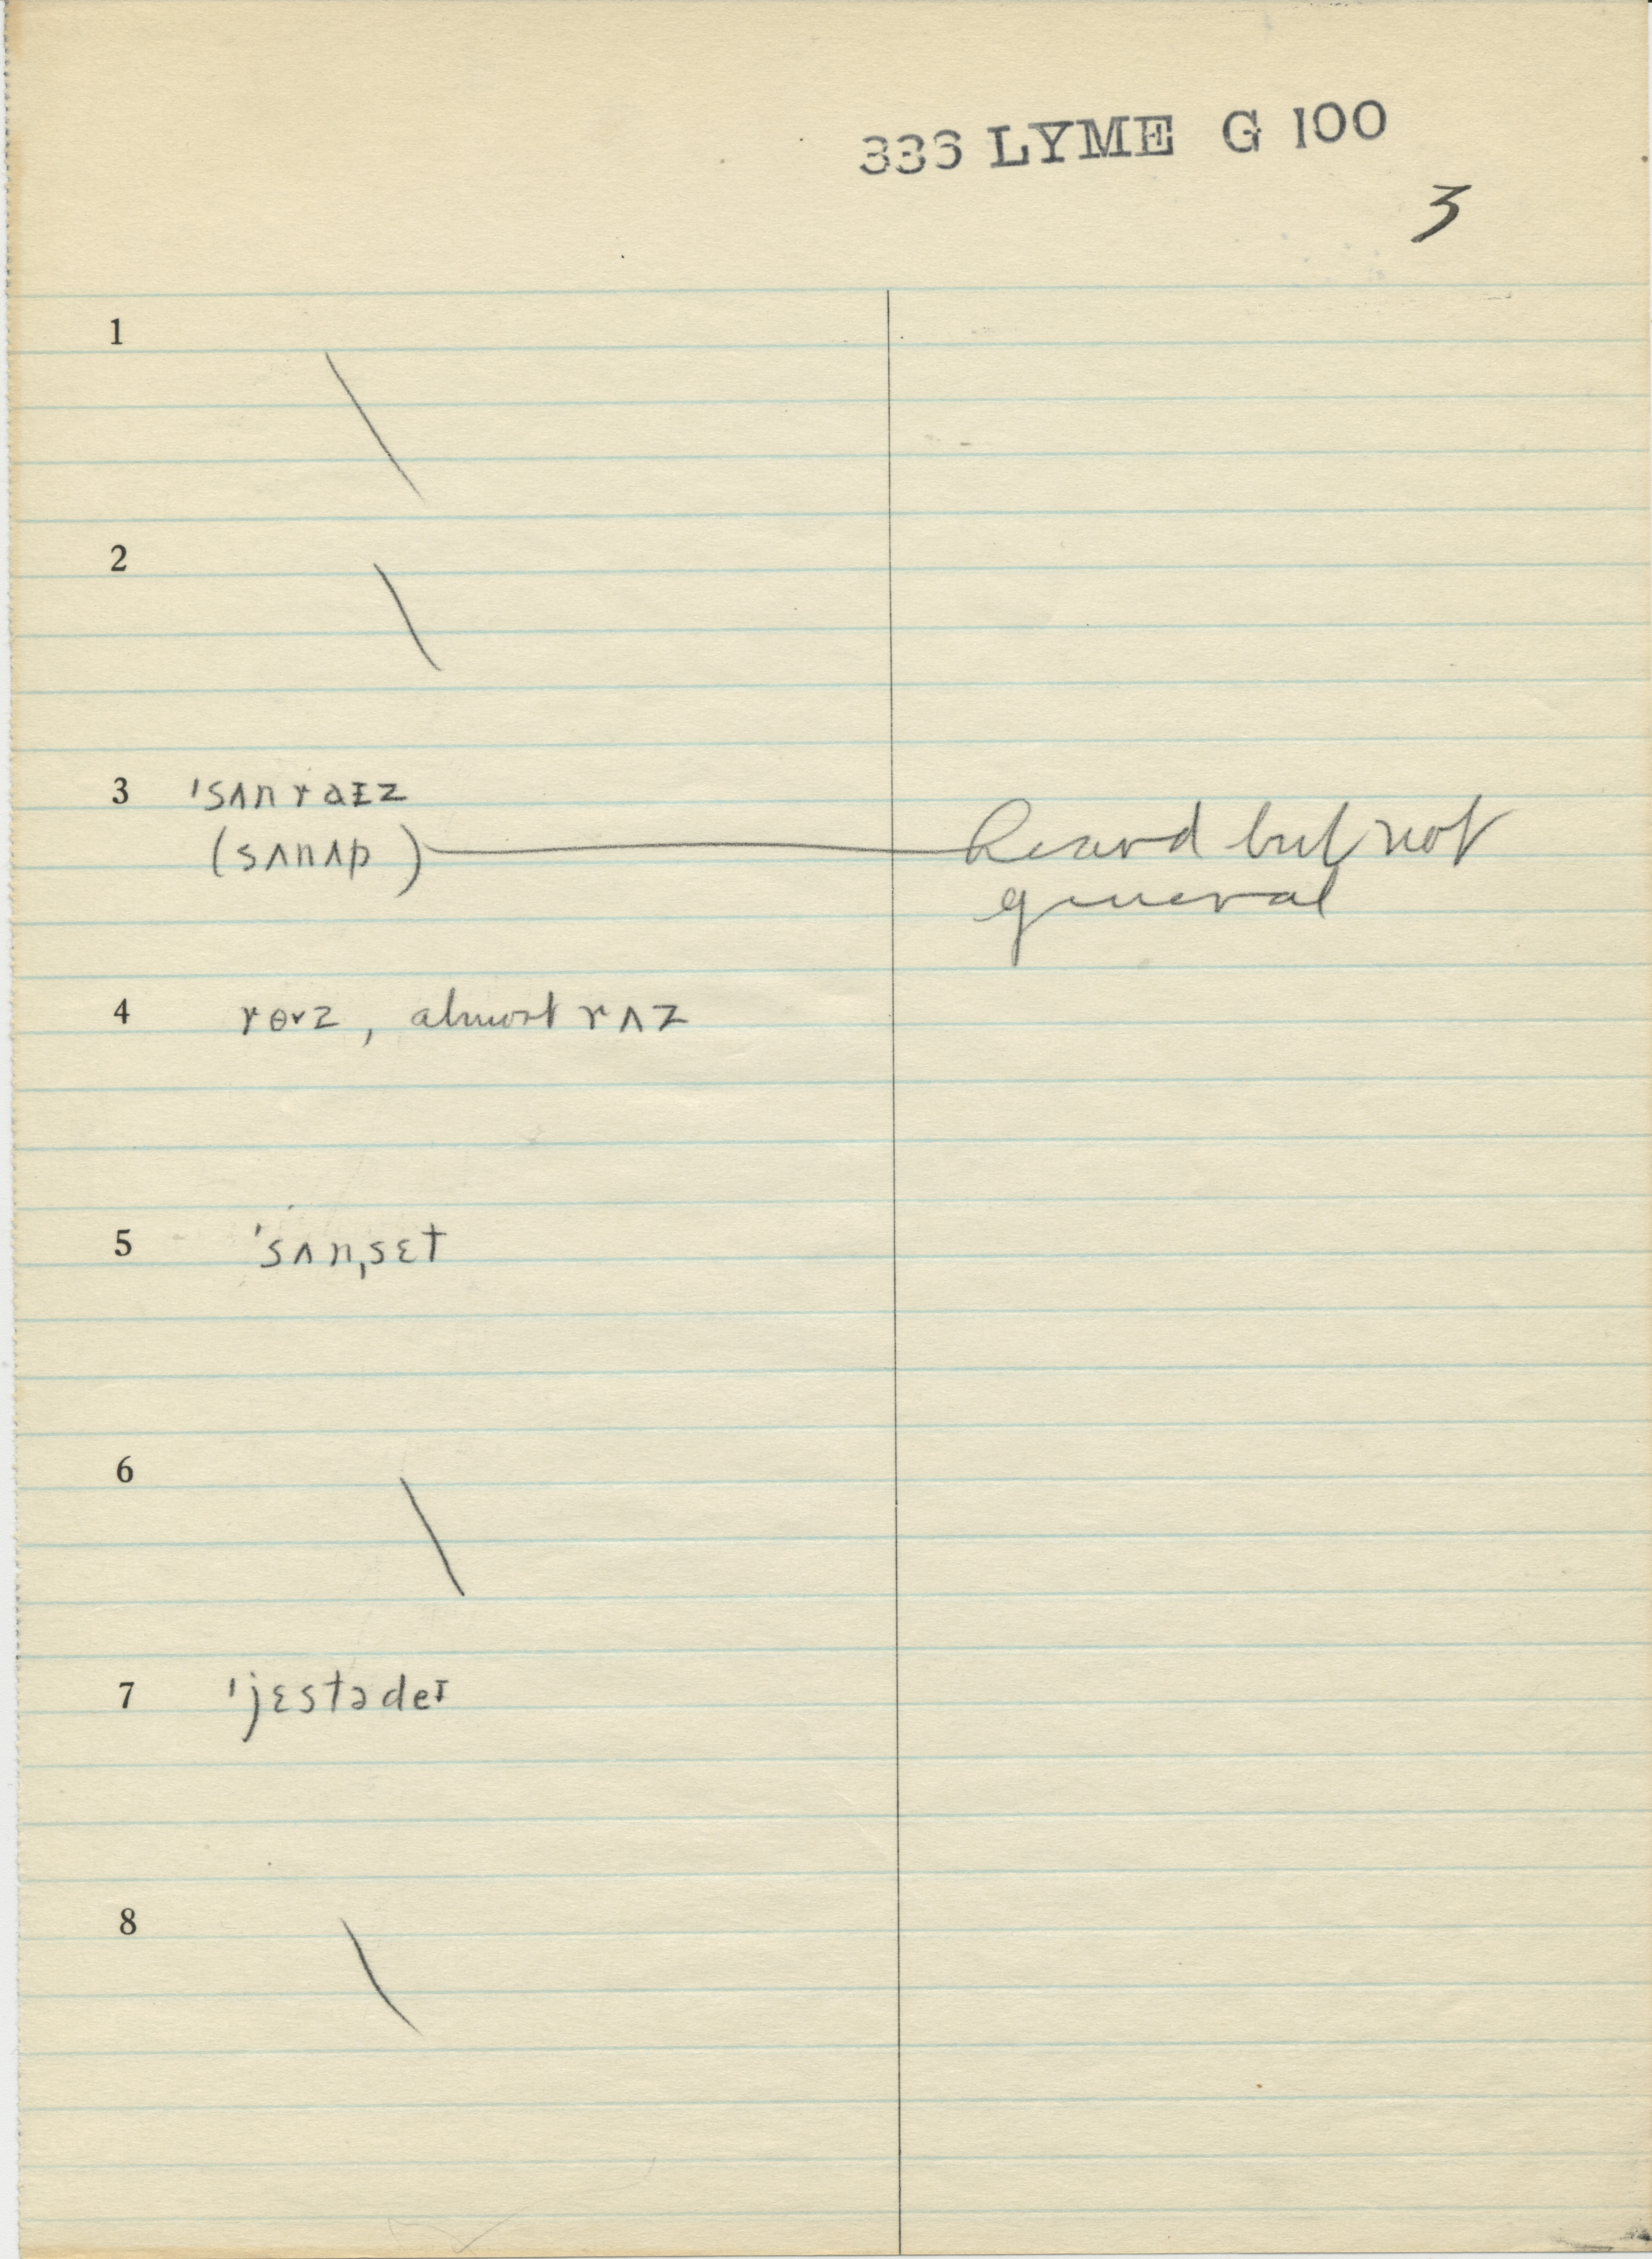 336 LYME G 100
3
1
2
3 ˈsʌnraɪz
(sʌnʌp) Heard but not
general
4 rɵvz, almost rʌz
5 ˈsʌnˌsɛt
6
7 ˈjɛstədeɪ
8